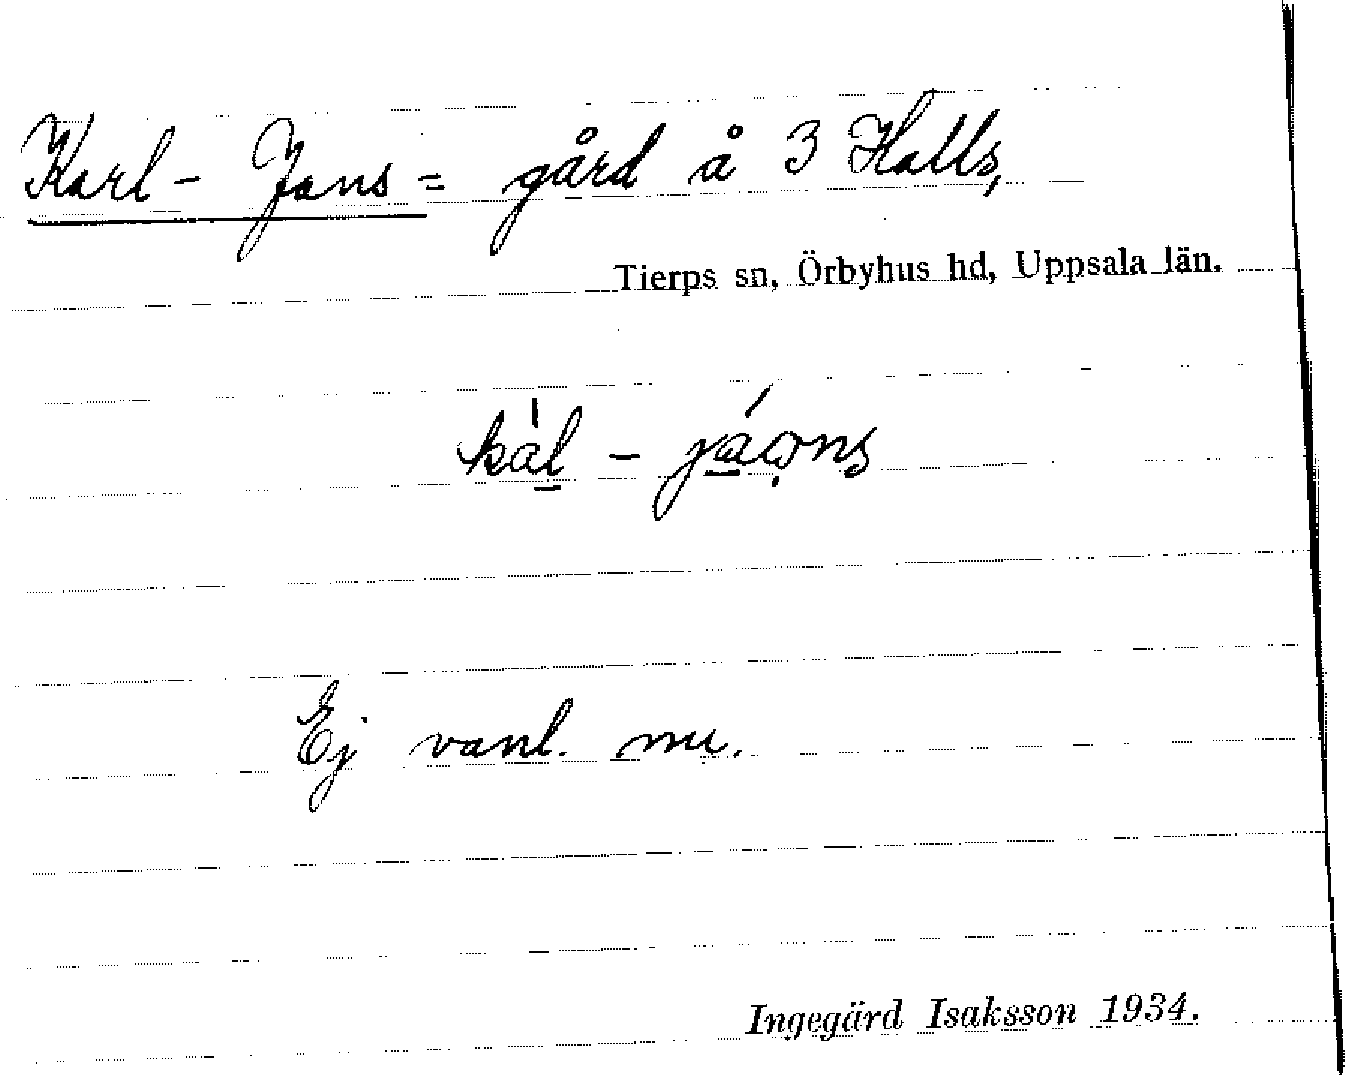 Karl - Jans = gård å 3 Halls,
Tierps sn, Örbyhus hd, Uppsala län.
kál -
Ej vanl. nu.
Ingegärd Isaksson 1934.